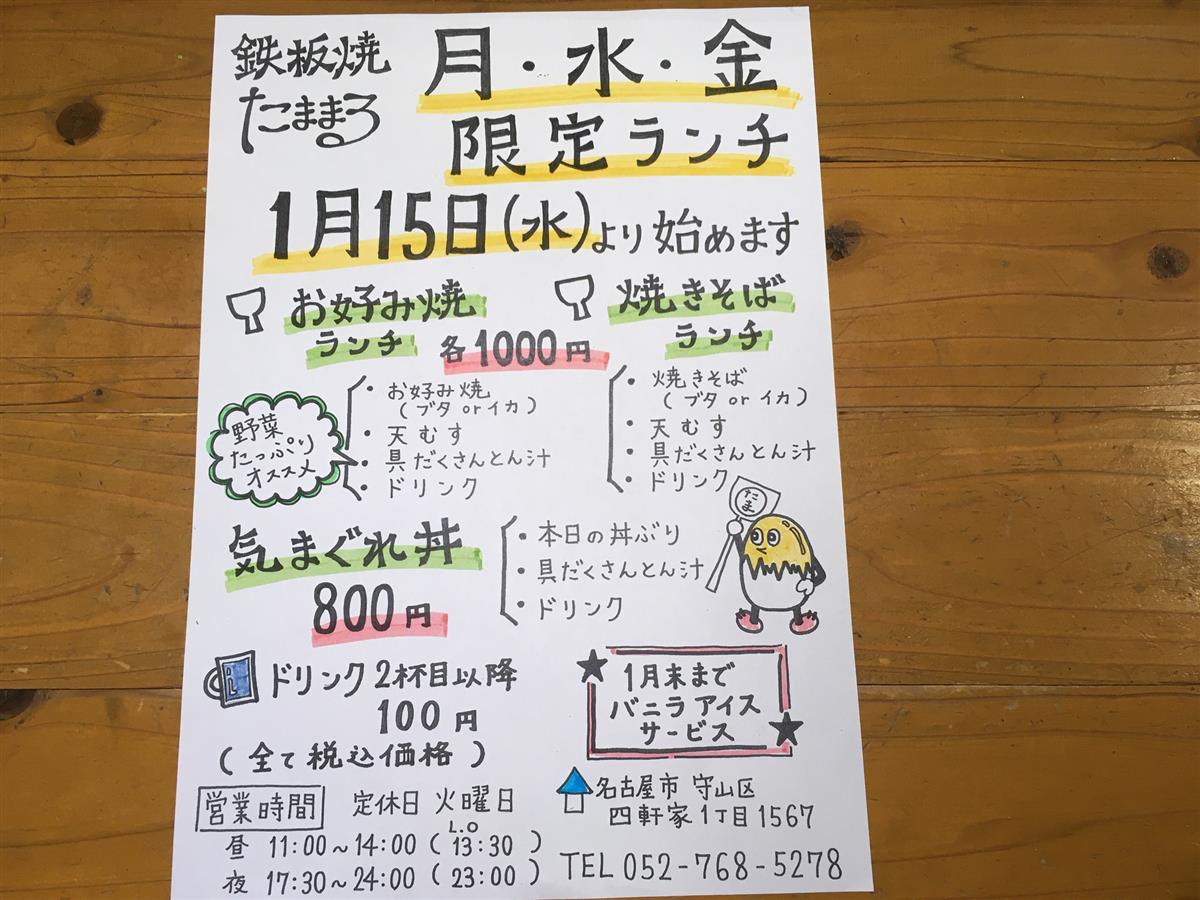 鉄板焼
たままろ
月・水・金
限定ランチ
1月15日(水)より始めます
お好み焼
ランチ
焼きそば
ランチ
各1000円
野菜
たっぷり
オススメ
・お好み焼
(ブタorイカ)
・天むす
・具だくさんとん汁
・ドリンク
・焼きそば
(ブタorイカ)
・天むす
・具だくさんとん汁
・ドリンク
たま
気まぐれ丼
800円
・本日の丼ぶり
・具だくさんとん汁
・ドリンク
ドリンク2杯目以降
100円
(全て税込価格)
★1月末まで
バニラアイス
サービス★
営業時間 定休日 火曜日
L.O
昼 11:00~14:00(13:30)
夜 17:30~24:00(23:00)
名古屋市 守山区
四軒家1丁目1567
TEL 052-768-5278